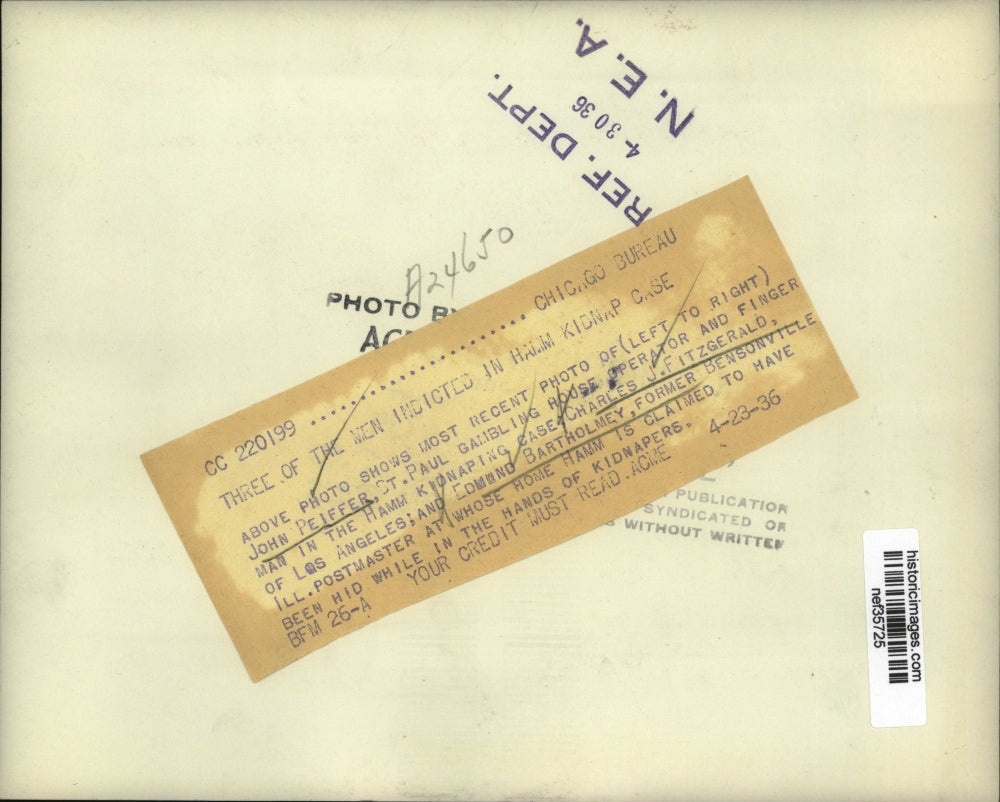 N. E. A.
4-30 36
REF. DEPT.
A24650
PHOTO BY
CC 220199 ........................ CHICAGO BUREAU
THREE OF THE MEN INDICTED IN HAMM KIDNAP CASE
ABOVE PHOTO SHOWS MOST RECENT PHOTO OF(LEFT TO RIGHT)
JOHN PEIFFER,ST.PAUL GAMBLING HOUSE OPERATOR AND FINGER
MAN IN THE HAMM KIDNAPING CASE;CHARLES J.FITZGERALD,
OF LOS ANGELES;AND EDMUND BARTHOLMEY,FORMER BENSONVILLE
ILL.POSTMASTER AT WHOSE HOME HAMM IS CLAIMED TO HAVE
BEEN HID WHILE IN THE HANDS OF KIDNAPERS. 4-23-36
BFM 26-A YOUR CREDIT MUST READ.ACME
PUBLICATION
SYNDICATED OR
WITHOUT WRITTEN
historicimages.com
nef35725